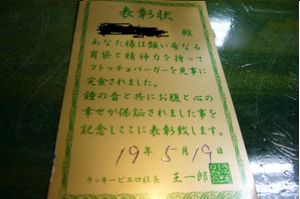 表彰状
殿
あなた様は類い希なる
胃袋と精神力を持って
フトッチョバーガーを見事に
完食されました。
鐘の音と共にお腹と心の
幸せが保証されました事を
記念しここに表彰致します。
19年5月19日
ラッキーピエロ社長 王一郎